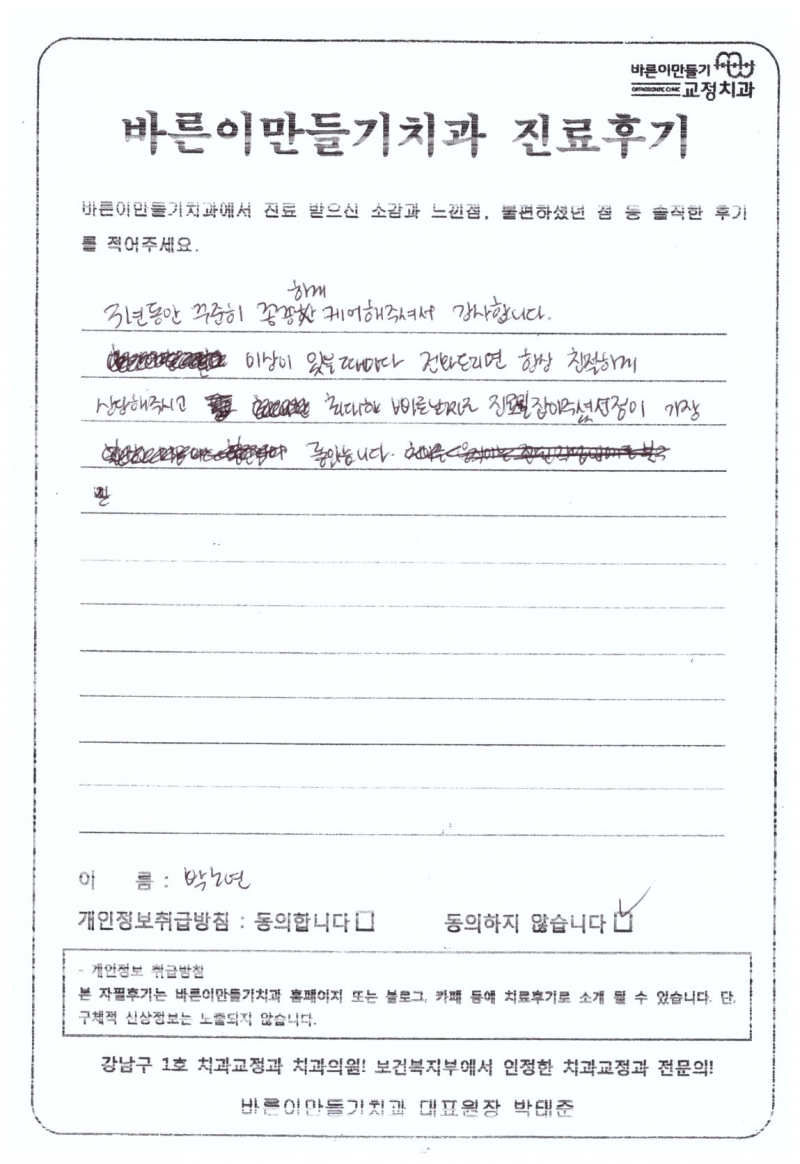 바른이만들기
ORTHODONTIC CLINIC 교정치과
바른이만들기치과 진료후기
바른이만들기치과에서 진료 받으신 소감과 느낀점, 불편하셨던 점 등 솔직한 후기
를 적어주세요.
하게
3년동안 꾸준히 꼼꼼 케어해주셔서 감사합니다.
이상이 있을때마다 전화드리면 항상 친절하게
상담해주시고 최대한 빠른날짜로 진료 잡아주셨던점이 가장
좋았습니다.
이 름 :
개인정보취급방침 : 동의합니다 동의하지 않습니다
- 개인정보 취급방침
본 자필후기는 바른이만들기치과 홈페이지 또는 블로그, 카페 등에 치료후기로 소개 될 수 있습니다. 단,
구체적 신상정보는 노출되지 않습니다.
강남구 1호 치과교정과 치과의원! 보건복지부에서 인정한 치과교정과 전문의!
바른이만들기치과 대표원장 박태준